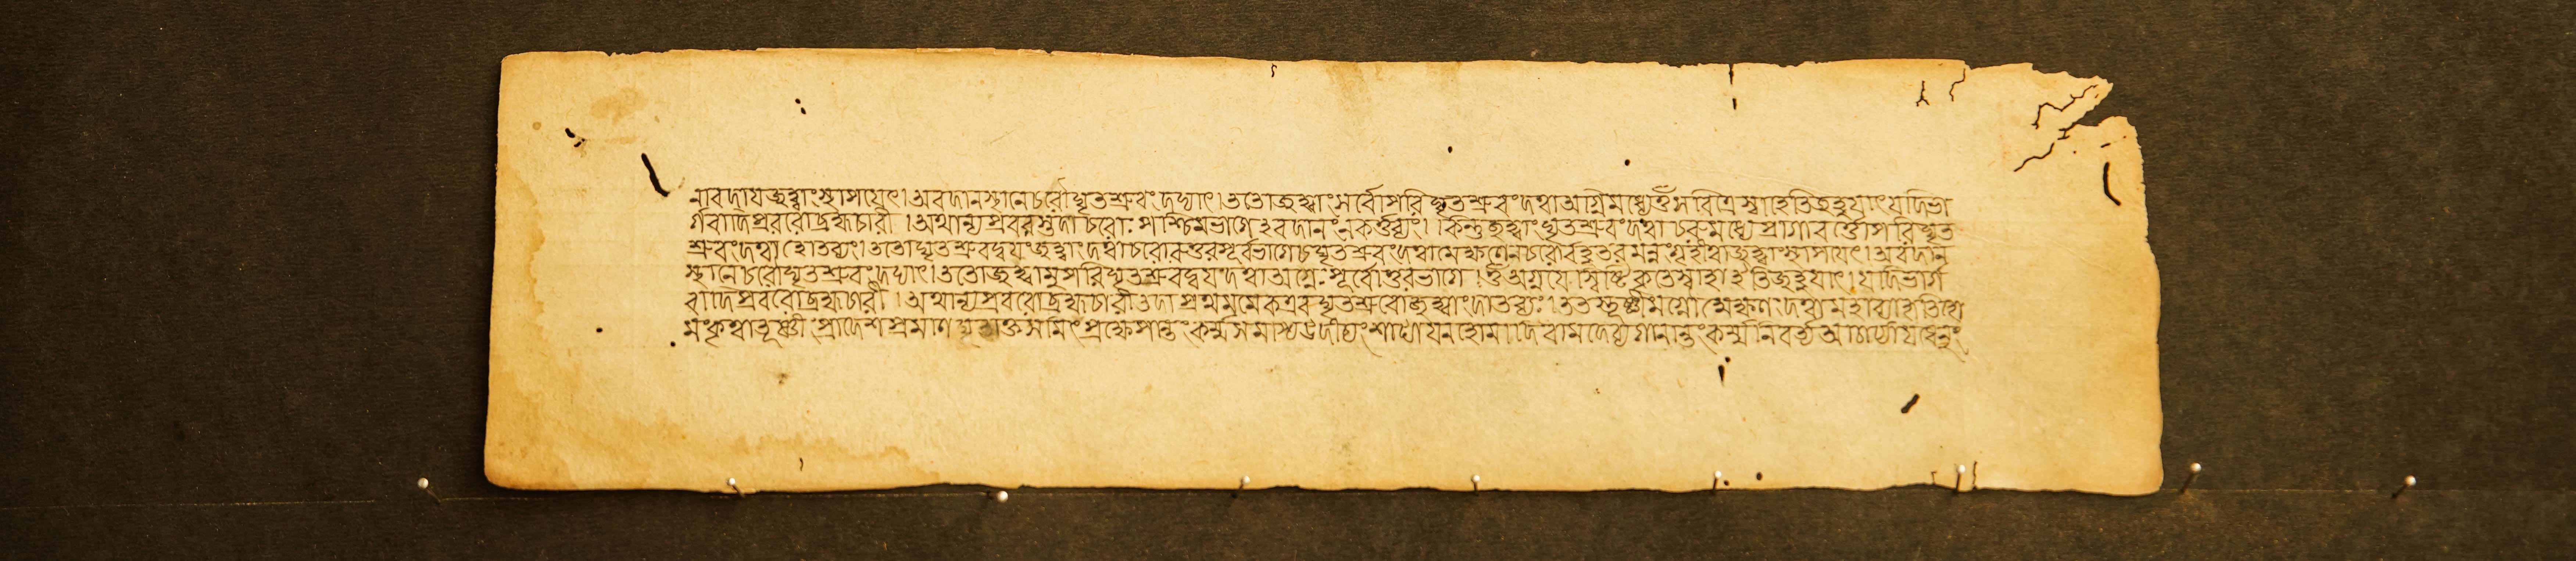 নাবদায জুহ্বাং স্থাপযেৎ। অবদানস্থানে চরৌ ঘৃতশ্রুবং দদ্যাৎ। ততো জুহ্বাং সর্ব্বোপরি ঘৃতশ্রুবং দত্বা অগ্নিমধ্যে ওঁ সবিত্রে স্বাহেতি জুহুযাৎ যদি ভা
র্গবাদিপ্রবরো ব্রহ্মচারী । অথান্যপ্রবর স্তদা চরোঃ পশ্চিমভাগে ঽবদানং ন কর্ত্তব্যং। কিন্তু জুহ্বাং ঘৃতশ্রুবং দত্বা চরুমধ্যে প্রাগাব উপরি ঘৃত
শ্রুবং দত্বা হোতব্যং। ততো ঘৃতশ্রুবদ্বযং জুহ্বাং দত্বা চরোরুত্তরপূর্ব্বভাগে চ ঘৃতশ্রুবং দত্বা মেক্ষণেন চরোর্বহুতরমন্নং গৃহীত্বা জুহ্বাং স্থাপযেৎ। অবদান
স্থানে চরৌ ঘৃতশ্রুবং দদ্যাৎ। ততো জুহ্বামুপরি ঘৃতশ্রুবদ্বযং দত্বা অগ্নেঃ পূর্ব্বোত্তরভাগে । ওঁ অগ্নযে স্বিষ্টিকৃতে স্বাহা ইতি জুহুযাৎ। যদি ভার্গ
বাদিপ্রবরো ব্রহ্মচারী । অথান্যপ্রবরো ব্রহ্মচারী তদা প্রথমমেকএব ঘৃতশ্রুবো জুহ্বাং দাতব্যঃ। ততস্তূষ্ণীমগ্নৌ মেক্ষণং দত্বা মহাব্যাহৃতিহো
মং কৃত্বা তূষ্ণীং প্রাদেশপ্রমাণ ঘৃতাক্ত সমিৎ প্রক্ষেপান্তং কর্ম্ম সমাপ্য উদীচ্যং শাট্যাযনহোমাদি বামদেব্যগানান্তং কর্ম্ম নিবর্ত্ত্য